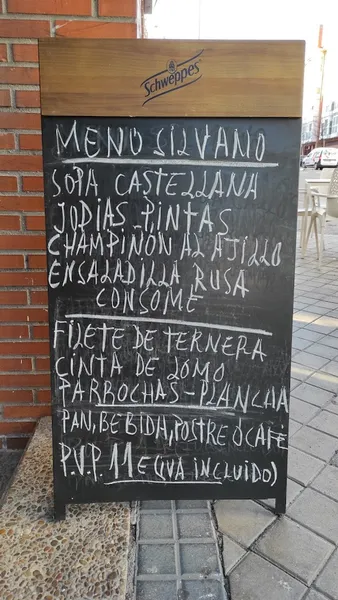 Schweppes
MENO SILVANO
SOPA CASTELLANA
JODIAS PINTAS
CHAMPIÑON AL AJILLO
ENSALADILLA RUSA
CONSOME
FILETE DE TERNERA
CINTA DE LOMO
PARROCHAS-PLANCHA
PAN, BEBIDA, POSTRE O CAFÉ
P.V.P. 11 € (IVA INCLUIDO)